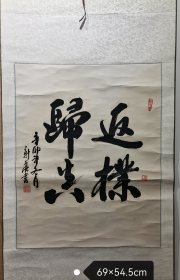 返樸
歸真
辛卯年六月
69×54.5cm